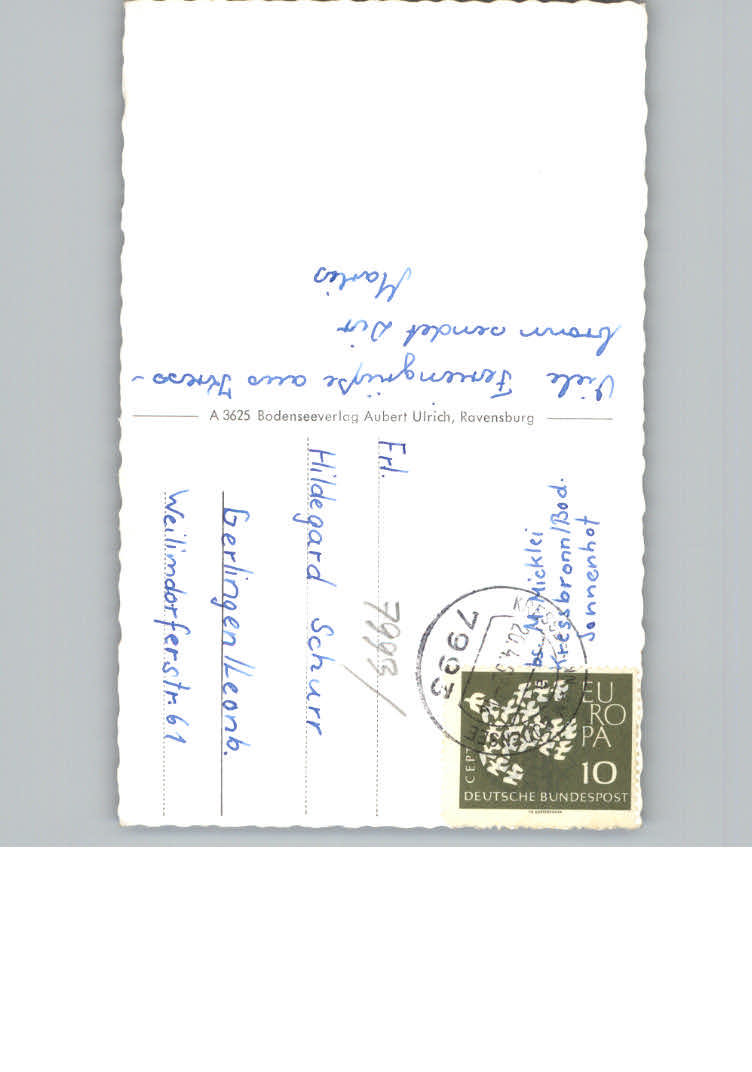 Viele Feriengrüße aus Kress-
bronn sendet Dir
Marlis
A 3625 Bodenseeverlag Aubert Ulrich, Ravensburg
bs. M. Micklei
Kressbronn/Bod.
Sonnenhof
Frl.
Hildegard Schurr
Gerlingen/Leonb.
Weilimdorferstr. 61
7993/
7993
EU
RO
PA
10
CEPT
DEUTSCHE BUNDESPOST